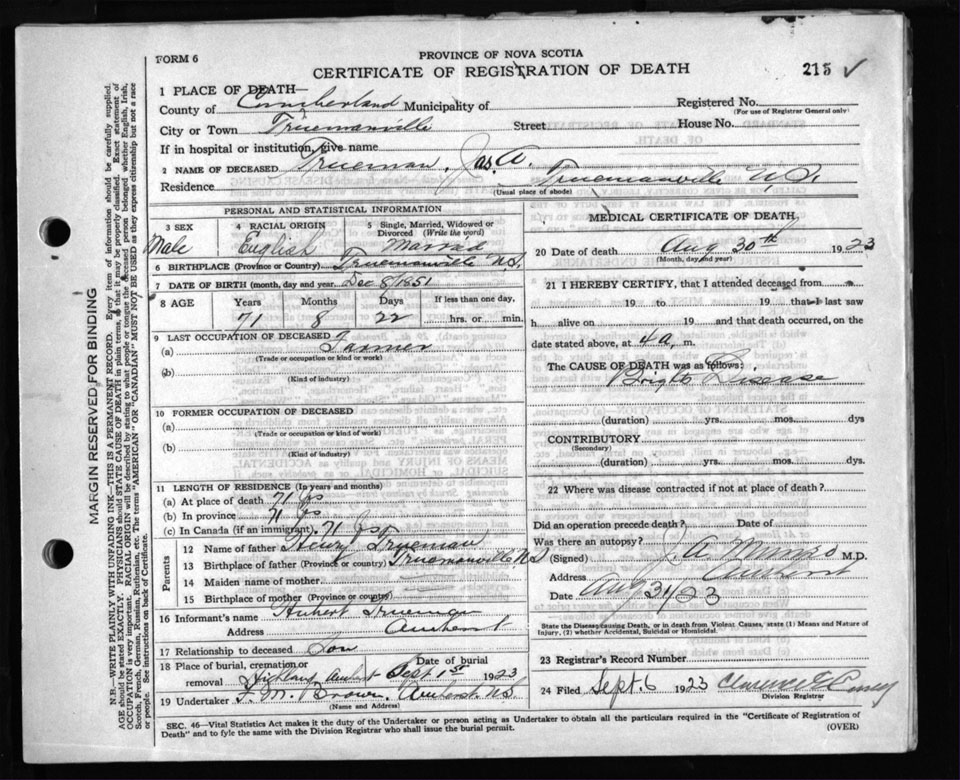 FORM 6
PROVINCE OF NOVA SCOTIA
CERTIFICATE OF REGISTRATION OF DEATH
215 ✓
1 PLACE OF DEATH—
County of Cumberland Municipality of
Registered No.
(For use of Registrar General only)
City or Town Truemanville Street House No.
If in hospital or institution, give name
2 NAME OF DECEASED Trueman, Jas. A.
Residence Truemanville N.S.
(Usual place of abode)
PERSONAL AND STATISTICAL INFORMATION
3 SEX
Male
4 RACIAL ORIGIN
English
5 Single, Married, Widowed or
Divorced (Write the word)
Married
6 BIRTHPLACE (Province or Country) Truemanville N.S.
7 DATE OF BIRTH (month, day and year) Dec 8/1851
8 AGE Years Months Days If less than one day,
71 8 22 hrs. or min.
9 LAST OCCUPATION OF DECEASED
(a) Farmer
(Trade or occupation or kind or work)
(b)
(Kind of industry)
10 FORMER OCCUPATION OF DECEASED
(a)
(Trade or occupation or kind of work)
(b)
(Kind of industry)
11 LENGTH OF RESIDENCE (In years and months)
(a) At place of death 71 yrs
(b) In province 71 yrs
(c) In Canada (if an immigrant) 71 yrs
Parents
12 Name of father Henry Trueman
13 Birthplace of father (Province or country) Truemanville N S
14 Maiden name of mother
15 Birthplace of mother (Province or country)
16 Informant's name Hubert Trueman
Address Amherst
17 Relationship to deceased Son
18 Place of burial, cremation or
removal Amherst
Date of burial
Sept 1st 1923
19 Undertaker F. M. Brown, Amherst N.S.
(Name and Address)
MEDICAL CERTIFICATE OF DEATH
20 Date of death Aug 30th 1923
(Month, day and year)
21 I HEREBY CERTIFY, that I attended deceased from
19 to 19 that I last saw
h alive on 19 and that death occurred, on the
date stated above, at 4 a, m.
The CAUSE OF DEATH was as follows:
Brights Disease
(duration) yrs. mos. dys
CONTRIBUTORY
(Secondary)
(duration) yrs. mos. dys.
22 Where was disease contracted if not at place of death?
Did an operation precede death? Date of
Was there an autopsy?
(Signed) J. A. Munro M.D.
Address Amherst
Date Aug 31/23
State the Disease causing Death, or in death from Violent Causes, state (1) Means and Nature of
Injury, (2) whether Accidental, Suicidal or Homicidal.
23 Registrar's Record Number
24 Filed Sept. 6 1923 Clarence
Division Registrar
SEC. 46—Vital Statistics Act makes it the duty of the Undertaker or person acting as Undertaker to obtain all the particulars required in the "Certificate of Registration of
Death" and to fyle the same with the Division Registrar who shall issue the burial permit.
(OVER)
MARGIN RESERVED FOR BINDING
N.B.—WRITE PLAINLY WITH UNFADING INK—THIS IS A PERMANENT RECORD. Every item of information should be carefully supplied.
AGE should be stated EXACTLY. PHYSICIANS should STATE CAUSE OF DEATH in plain terms, so that it may be properly classified. Exact statement of
OCCUPATION is very important. RACIAL ORIGIN will be described by stating to what people or tongue the deceased person belonged whether English, Irish,
Scotch, French, German, Russian, Ruthenian, etc. The terms "AMERICAN" OR "CANADIAN" MUST NOT BE USED as they express citizenship but not a race
or people. See instructions on back of Certificate.